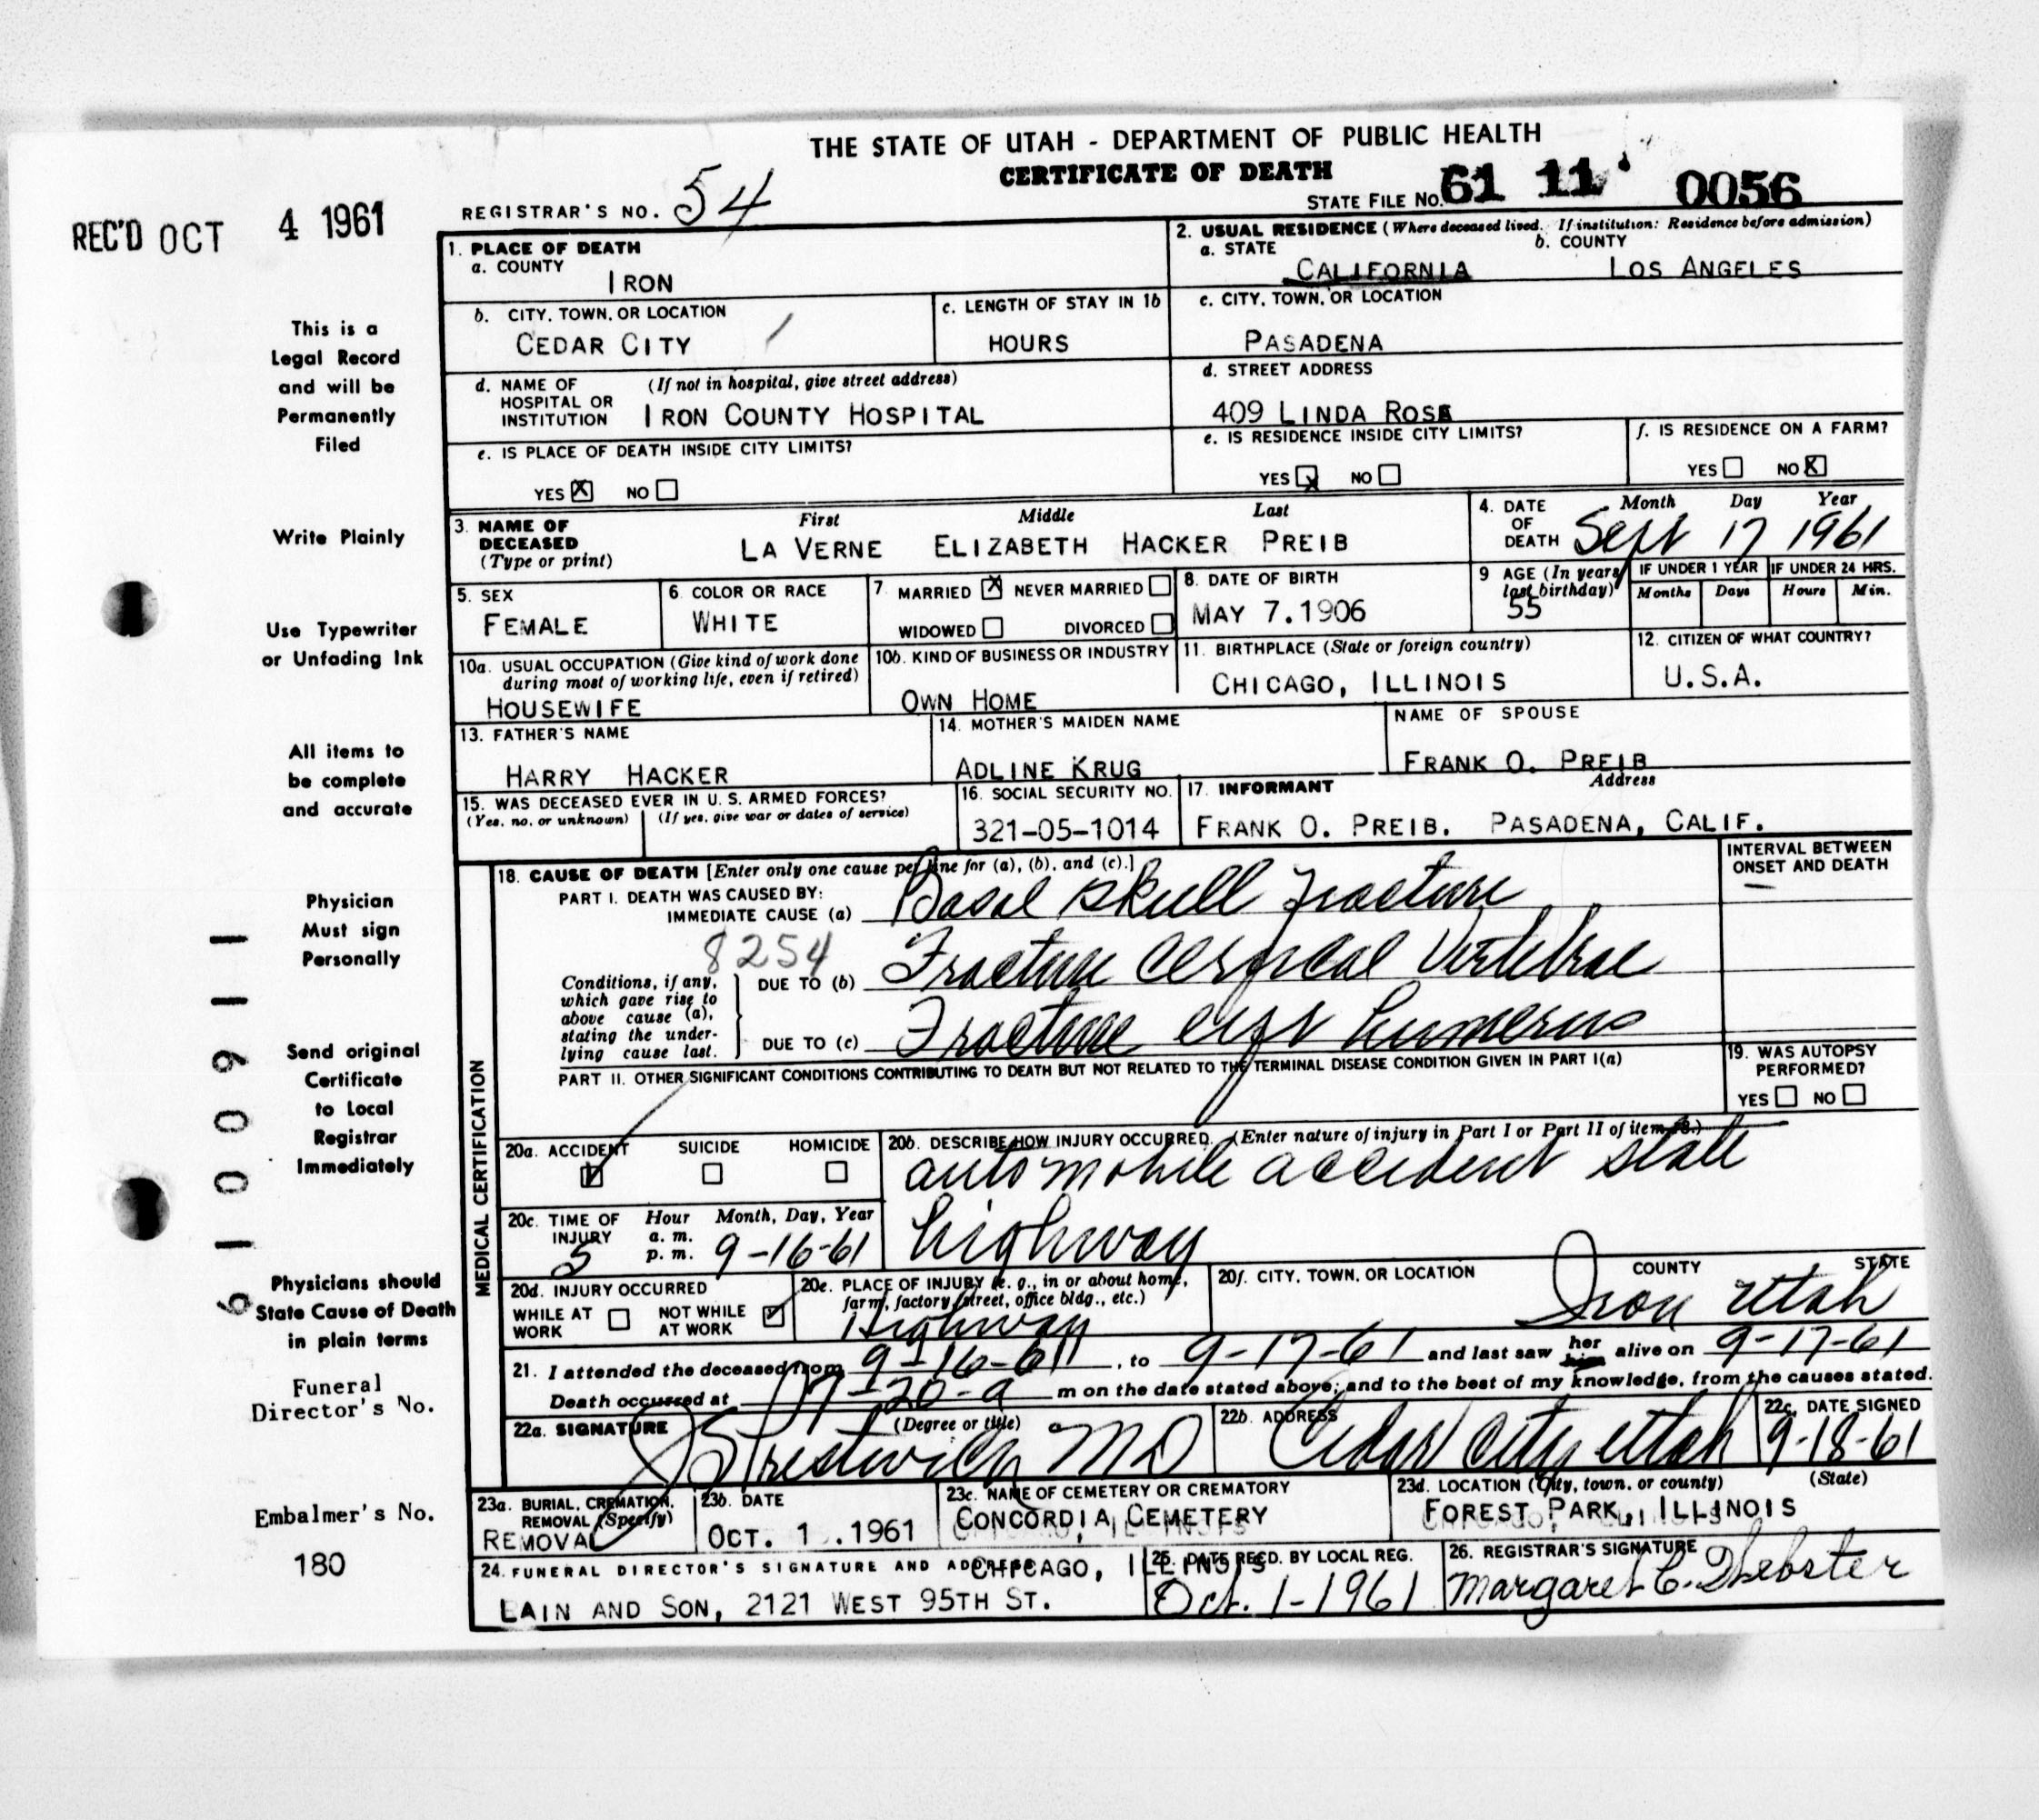 THE STATE OF UTAH - DEPARTMENT OF PUBLIC HEALTH
CERTIFICATE OF DEATH
REC'D OCT 4 1961
REGISTRAR'S NO. 54
STATE FILE NO. 61 11 0056
1. PLACE OF DEATH
a. COUNTY
IRON
2. USUAL RESIDENCE (Where deceased lived. If institution: Residence before admission)
a. STATE b. COUNTY
CALIFORNIA LOS ANGELES
b. CITY, TOWN, OR LOCATION
CEDAR CITY
c. LENGTH OF STAY IN 1b
HOURS
c. CITY, TOWN, OR LOCATION
PASADENA
d. NAME OF HOSPITAL OR INSTITUTION (If not in hospital, give street address)
IRON COUNTY HOSPITAL
d. STREET ADDRESS
409 LINDA ROSA
e. IS PLACE OF DEATH INSIDE CITY LIMITS?
YES X NO
e. IS RESIDENCE INSIDE CITY LIMITS?
YES X NO
f. IS RESIDENCE ON A FARM?
YES NO X
3. NAME OF DECEASED (Type or print)
First Middle Last
LA VERNE ELIZABETH HACKER PREIB
4. DATE OF DEATH Month Day Year
Sept 17 1961
5. SEX
FEMALE
6. COLOR OR RACE
WHITE
7. MARRIED X NEVER MARRIED
WIDOWED DIVORCED
8. DATE OF BIRTH
MAY 7.1906
9 AGE (In years last birthday)
55
IF UNDER 1 YEAR IF UNDER 24 HRS.
Months Days Hours Min.
10a. USUAL OCCUPATION (Give kind of work done during most of working life, even if retired)
HOUSEWIFE
10b. KIND OF BUSINESS OR INDUSTRY
OWN HOME
11. BIRTHPLACE (State or foreign country)
CHICAGO, ILLINOIS
12. CITIZEN OF WHAT COUNTRY?
U.S.A.
13. FATHER'S NAME
HARRY HACKER
14. MOTHER'S MAIDEN NAME
ADLINE KRUG
NAME OF SPOUSE
FRANK O. PREIB
15. WAS DECEASED EVER IN U. S. ARMED FORCES?
(Yes, no, or unknown) (If yes, give war or dates of service)
16. SOCIAL SECURITY NO.
321-05-1014
17. INFORMANT Address
FRANK O. PREIB. PASADENA, CALIF.
MEDICAL CERTIFICATION
18. CAUSE OF DEATH [Enter only one cause per line for (a), (b), and (c).]
INTERVAL BETWEEN ONSET AND DEATH
PART I. DEATH WAS CAUSED BY:
IMMEDIATE CAUSE (a) Basal skull fracture
8254
Conditions, if any, which gave rise to above cause (a), stating the underlying cause last.
DUE TO (b) Fracture cervical vertebrae
DUE TO (c) Fracture left humerus
PART II. OTHER SIGNIFICANT CONDITIONS CONTRIBUTING TO DEATH BUT NOT RELATED TO THE TERMINAL DISEASE CONDITION GIVEN IN PART I(a)
19. WAS AUTOPSY PERFORMED?
YES NO
20a. ACCIDENT SUICIDE HOMICIDE
20b. DESCRIBE HOW INJURY OCCURRED. (Enter nature of injury in Part I or Part II of item 18.)
automobile accident state
highway
20c. TIME OF INJURY Hour Month, Day, Year
5 a. m. p. m. 9-16-61
20d. INJURY OCCURRED
WHILE AT WORK NOT WHILE AT WORK
20e. PLACE OF INJURY (e. g., in or about home, farm, factory, street, office bldg., etc.)
Highway
20f. CITY, TOWN, OR LOCATION COUNTY STATE
Iron Utah
21. I attended the deceased from 9-16-61, to 9-17-61 and last saw her him alive on 9-17-61
Death occurred at 7-20-a m on the date stated above; and to the best of my knowledge, from the causes stated.
22a. SIGNATURE (Degree or title)
Prestwich MD
22b. ADDRESS
Cedar City Utah
22c. DATE SIGNED
9-18-61
23a. BURIAL, CREMATION, REMOVAL (Specify)
REMOVAL
23b. DATE
OCT. 1 .1961
23c. NAME OF CEMETERY OR CREMATORY
CONCORDIA CEMETERY
23d. LOCATION (City, town, or county) (State)
FOREST PARK, ILLINOIS
24. FUNERAL DIRECTOR'S SIGNATURE AND ADDRESS
CHICAGO, ILLINOIS
LAIN AND SON, 2121 WEST 95TH ST.
25. DATE RECD. BY LOCAL REG.
Oct. 1-1961
26. REGISTRAR'S SIGNATURE
Margaret C. Webster
This is a
Legal Record
and will be
Permanently
Filed
Write Plainly
Use Typewriter
or Unfading Ink
All items to
be complete
and accurate
Physician
Must sign
Personally
Send original
Certificate
to Local
Registrar
Immediately
Physicians should
State Cause of Death
in plain terms
Funeral
Director's No.
Embalmer's No.
180